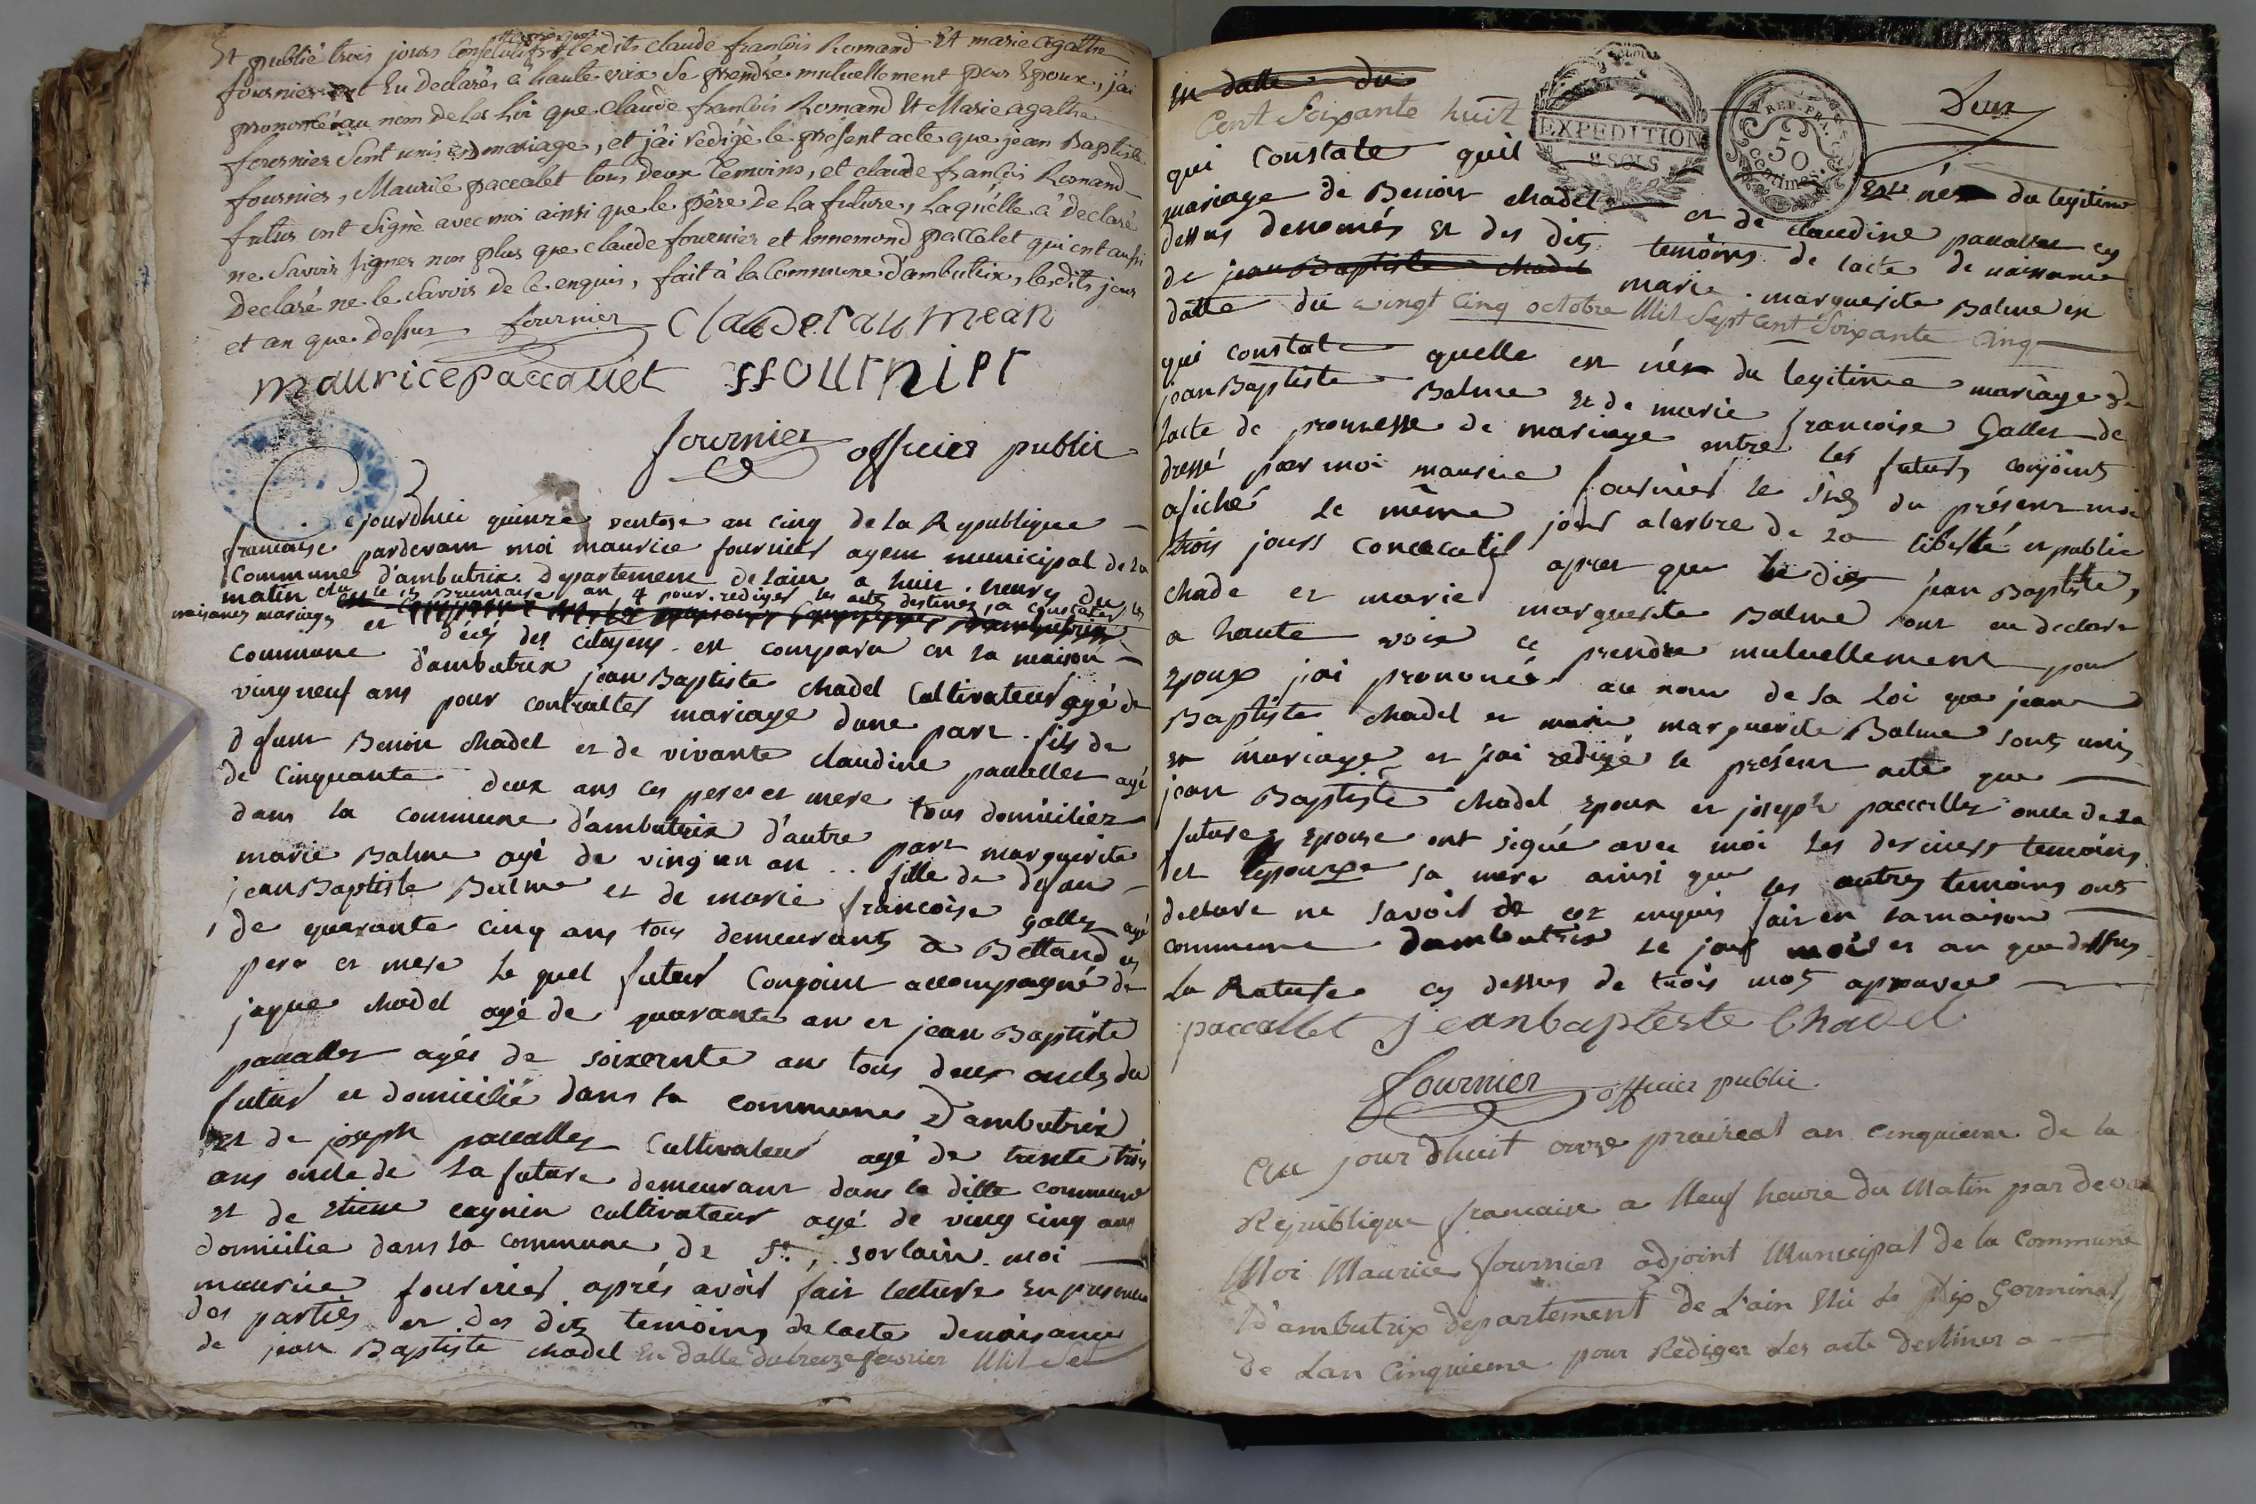 Et publié trois jours consecutifs lesdits claude francois Romand Et marie agathe
fournier ont Eu Declarés à haute voix Se prendre mutuellement pour Epoux, j'ai
prononcé au nom de la Loi que claude francois Romand Et Marie agathe
fournier Sont unis en mariage, et j'ai rédigé le présent acte que jean Baptiste
fournier, Maurile paccalet tous deux temoins, et claude francois Romand
futur ont Signé avec moi ainsi que le père De la future, laquélle à déclaré
ne Savoir Signer non plus que claude fournier et Annemond paccalet qui ont aussi
Declaré ne le Savoir de ce enquis, fait à la Commune d'ambutrix, lesdits jour
et an que dessus fournier
maurice paccallet ffournier
fournier officier public
Cejourdhui quinze ventose an cinq de la Republique
francaise pardevant moi maurice fournier agent municipal de la
Commune d'ambutrix Departement de lain a huit heures du
matin elu le 15 Brumaire an 4 pour rediger les actes destinés a constater les
naisances mariages et décés des citoyens est comparu en la maison
Commune d'ambutrix jean Baptiste chadel Cultivateur agé de
ving neuf ans pour contracter mariage dune part fils de
defunt Benoit chadel et de vivante claudine paccallet agé
de Cinquante deux ans ces peres et mere tous domiciliez
dans la commune d'ambutrix d'autre part marguerite
marie Balme agé de ving un an .. fille de defunt
jean Baptiste Balme et de marie francoise gallet agé
de quarante cinq ans tous demeurants a Bettand ces
pere et mere le quel futur Conjoint accompagné de
jaque chadel agé de quarante an et jean Baptiste
paccallet agés de soixente ans tous deux oncles du
futur et domicilié dans la commune D'ambutrix
et de joseph paccallet Cultivateur agé de trente trois
ans oncle de la future demeurant dans la ditte commune
et de etiene caynin cultivateur agé de ving cinq ans
domicilié dans la commune de St. sorlain moi
maurice fournier aprés avoir fait lecture En presence
des parties et des dits temoins de lacte denaisance
de jean Baptiste chadel En datte du treize fevrier Mil Set
en datte du
Cent Soixante huit
EXPEDITION
8 SOLS
REP. FRA.
50
Centimes.
Deux
qui constate quil est né du legitime
mariage de Benoit chadel et de claudine paccallet cy
dessus denomés et des dits temoins de lacte de naissance
de jean Baptiste chadel marie marguerite Balme en
datte du vingt cinq octobre Mil Sept Cent Soixante Cinq
qui constate quelle est née du legitime mariage de
jean Baptiste Balme et de marie francoise Gallet de
lacte de promesse de mariage entre les futurs conjoints
dressé par moi maurice fournier le du présent moi
afiché le même jour a larbre de la liberté et publié
trois jours concecutif apres que le dits jean Baptiste,
chade et marie marguerite Balme ont eu declaré
a haute voix ce prendre mutuellement pour
epoux jai prononcé au nom de la Loi que jean
Baptiste chadel et marie marguerite Balme sont unis
en mariage et jai redigé le présent acte que
jean Baptiste chadel epoux et joseph paccallet oncle de la
future epouse ont signé avec moi les derniers temoins
et lepouxe sa mere ainsi que les autres temoins ont
declaré ne savoir de ce enquis fait en la maison
commune dambutrix le jour mois et an que dessus
la Rature cy dessus de trois mots aprouvee
paccallet jeanbapteste Chadel
fournier officier public
Cea jour dhuit onze praireal an cinquieme de la
République francaise a Neuf heure du Matin par devant
Moi Maurice fournier adjoint Municipal de la Commune
D'ambutrix departement de L'ain Elü le Dix Germinal
de Lan Cinquieme pour Rediger Les acte destiner a